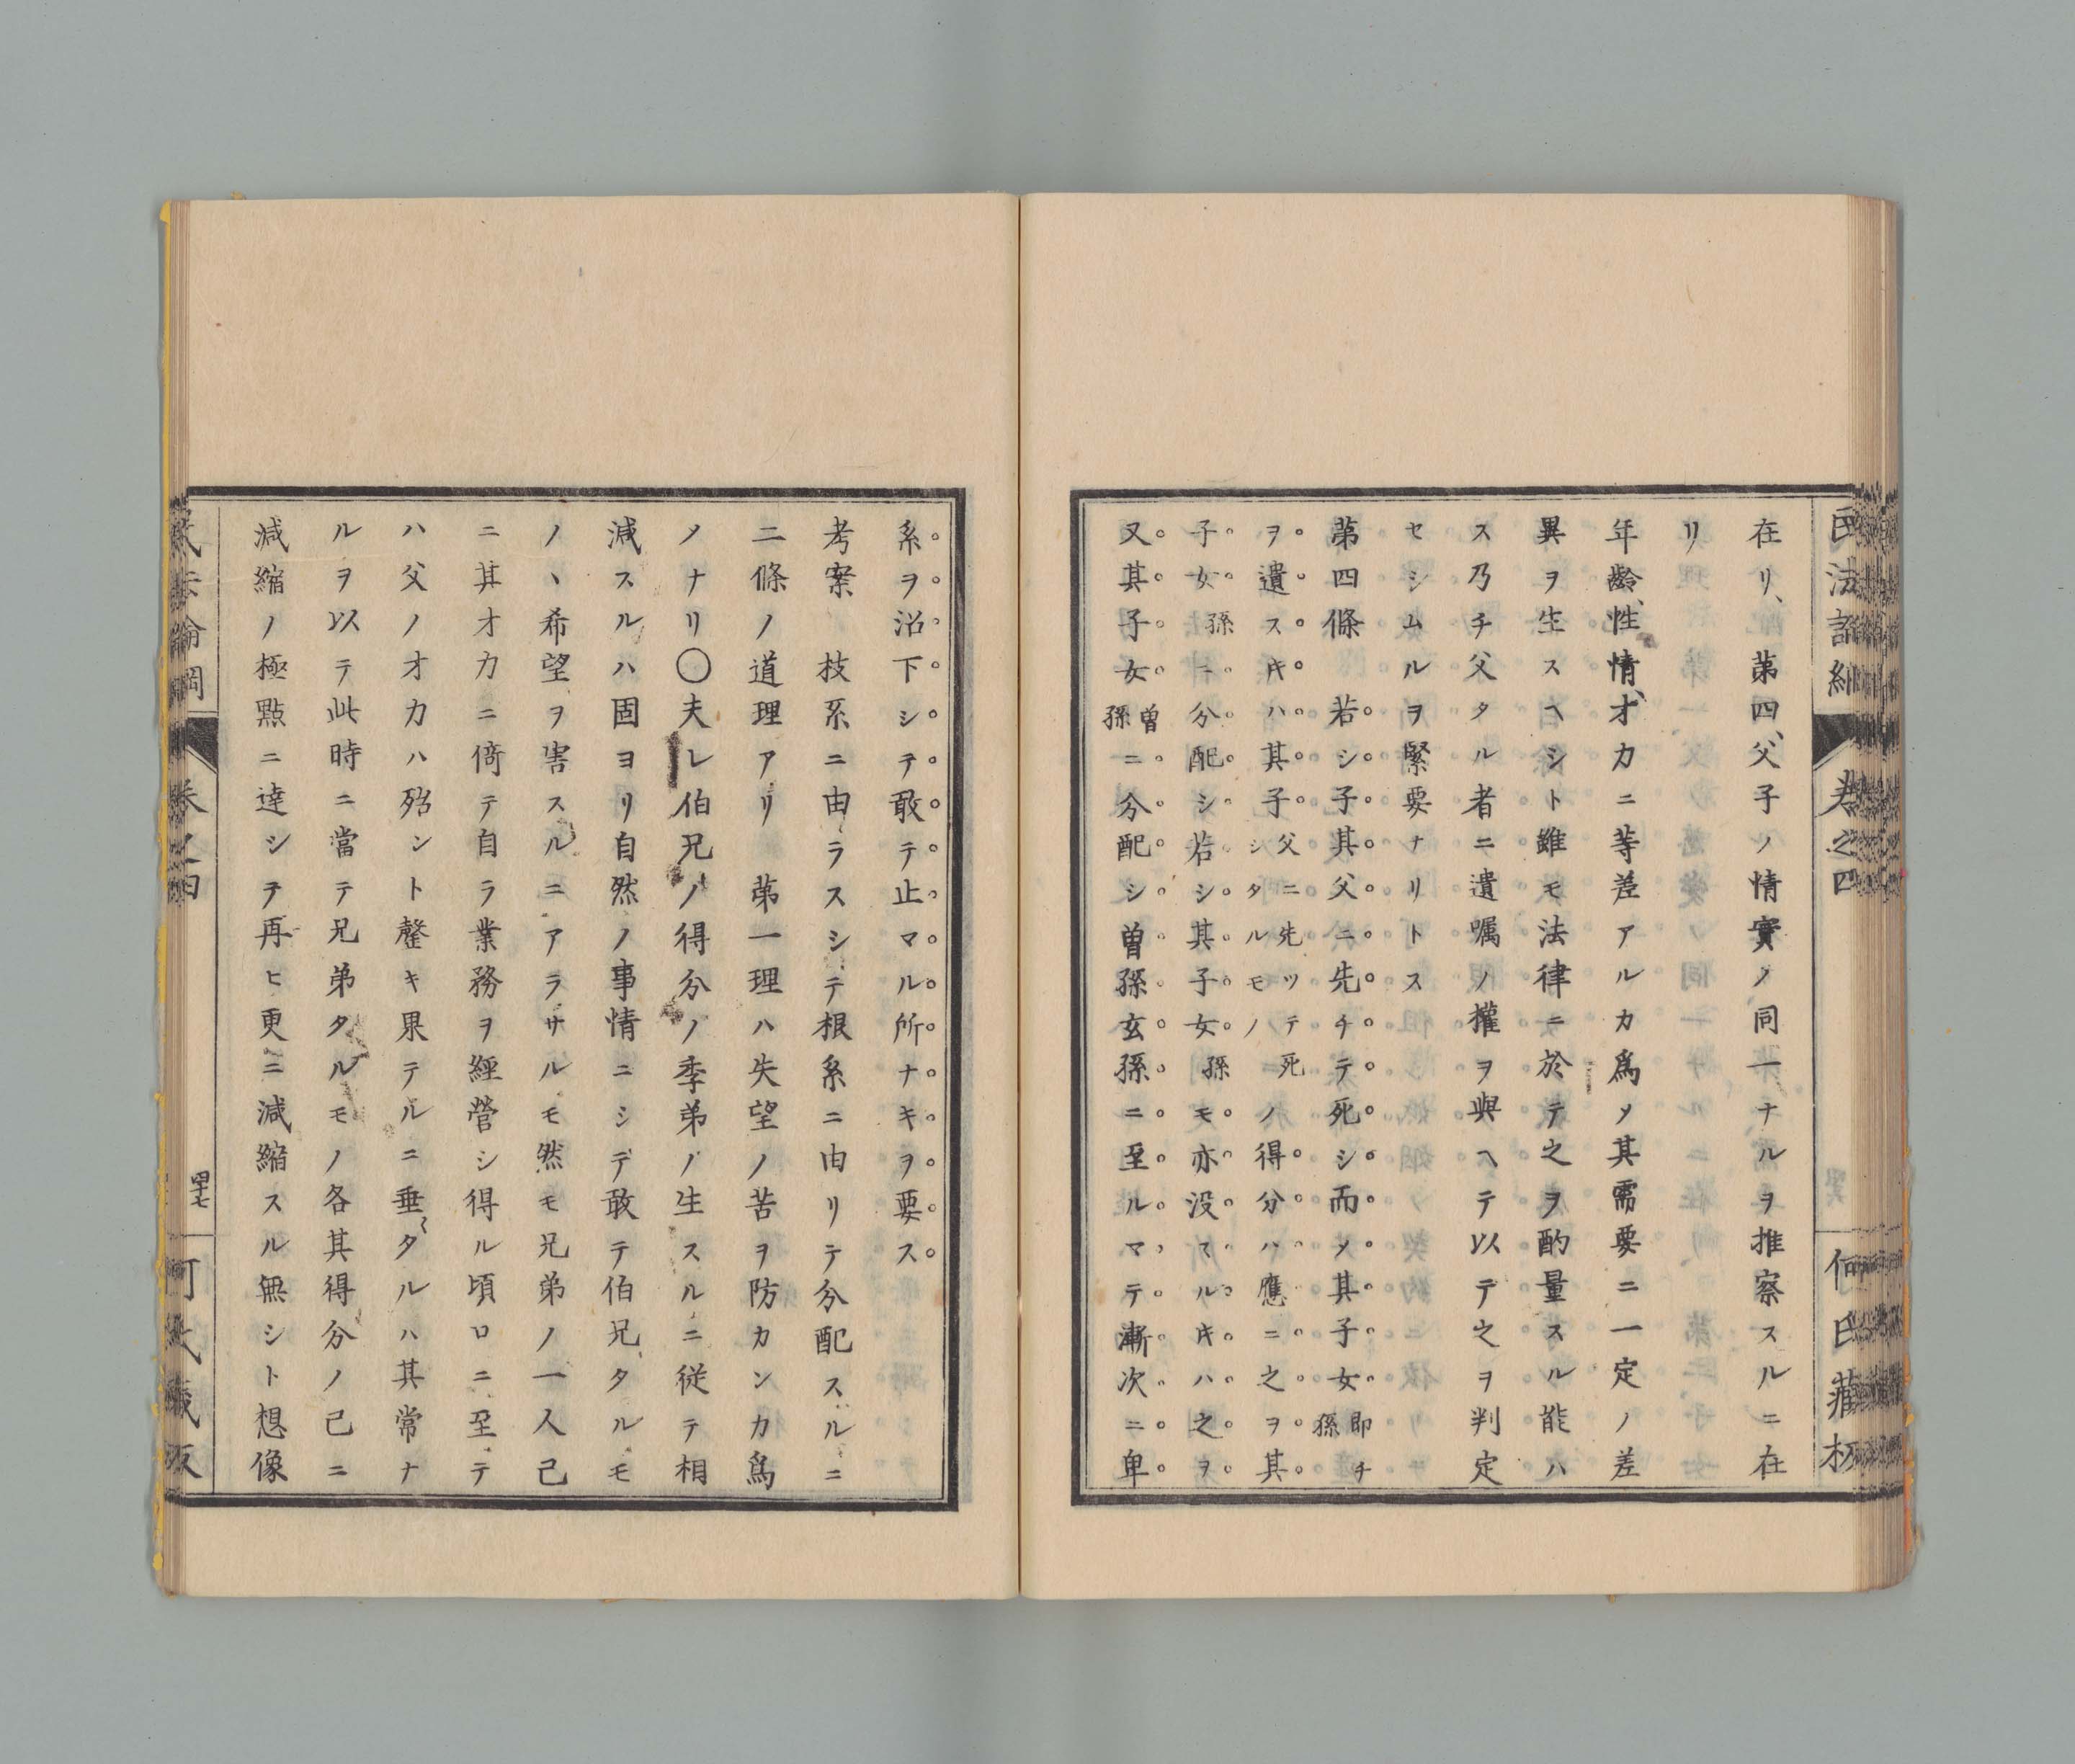 民法論綱 卷之四 何氏藏板
在リ、第四、父子ノ情實ノ同一ナルヲ推察スルニ在
リ
年齡、性情、才力ニ等差アルカ爲メ其需要ニ一定ノ差
異ヲ生スヘシト雖モ法律ニ於テ之ヲ酌量スル能ハ
ス乃チ父タル者ニ遺囑ノ權ヲ與ヘテ以テ之ヲ判定
セシムルヲ緊要ナリトス
第四條 若シ子其父ニ先チテ死シ而メ其子女即チ孫
ヲ遺ス𪜈ハ其子父ニ先ツテ死シタルモノノ得分ハ應ニ之ヲ其
子女孫ニ分配シ若シ其子女孫モ亦没スル𪜈ハ之ヲ
又其子女曽孫ニ分配シ曽孫玄孫ニ至ルマテ漸次ニ卑
系ヲ沿下シテ敢テ止マル所ナキヲ要ス
考案 枝系ニ由ラスシテ根系ニ由リテ分配スルニ
二條ノ道理アリ 第一理ハ失望ノ苦ヲ防カンカ爲
メナリ〇夫レ伯兄ノ得分ノ季弟ノ生スルニ従テ相
減スルハ固ヨリ自然ノ事情ニシテ敢テ伯兄タルモ
ノヽ希望ヲ害スルニアラサルモ然モ兄弟ノ一人己
ニ其才力ニ倚テ自ラ業務ヲ經營シ得ル頃ロニ至テ
ハ父ノ才力ハ殆ント罄キ果テルニ垂タルハ其常ナ
ルヲ以テ此時ニ當テ兄弟タルモノノ各其得分ノ己ニ
減縮ノ極點ニ達シテ再ヒ更ニ減縮スル無シト想像
民法論綱 卷之四 四十七 何氏藏板